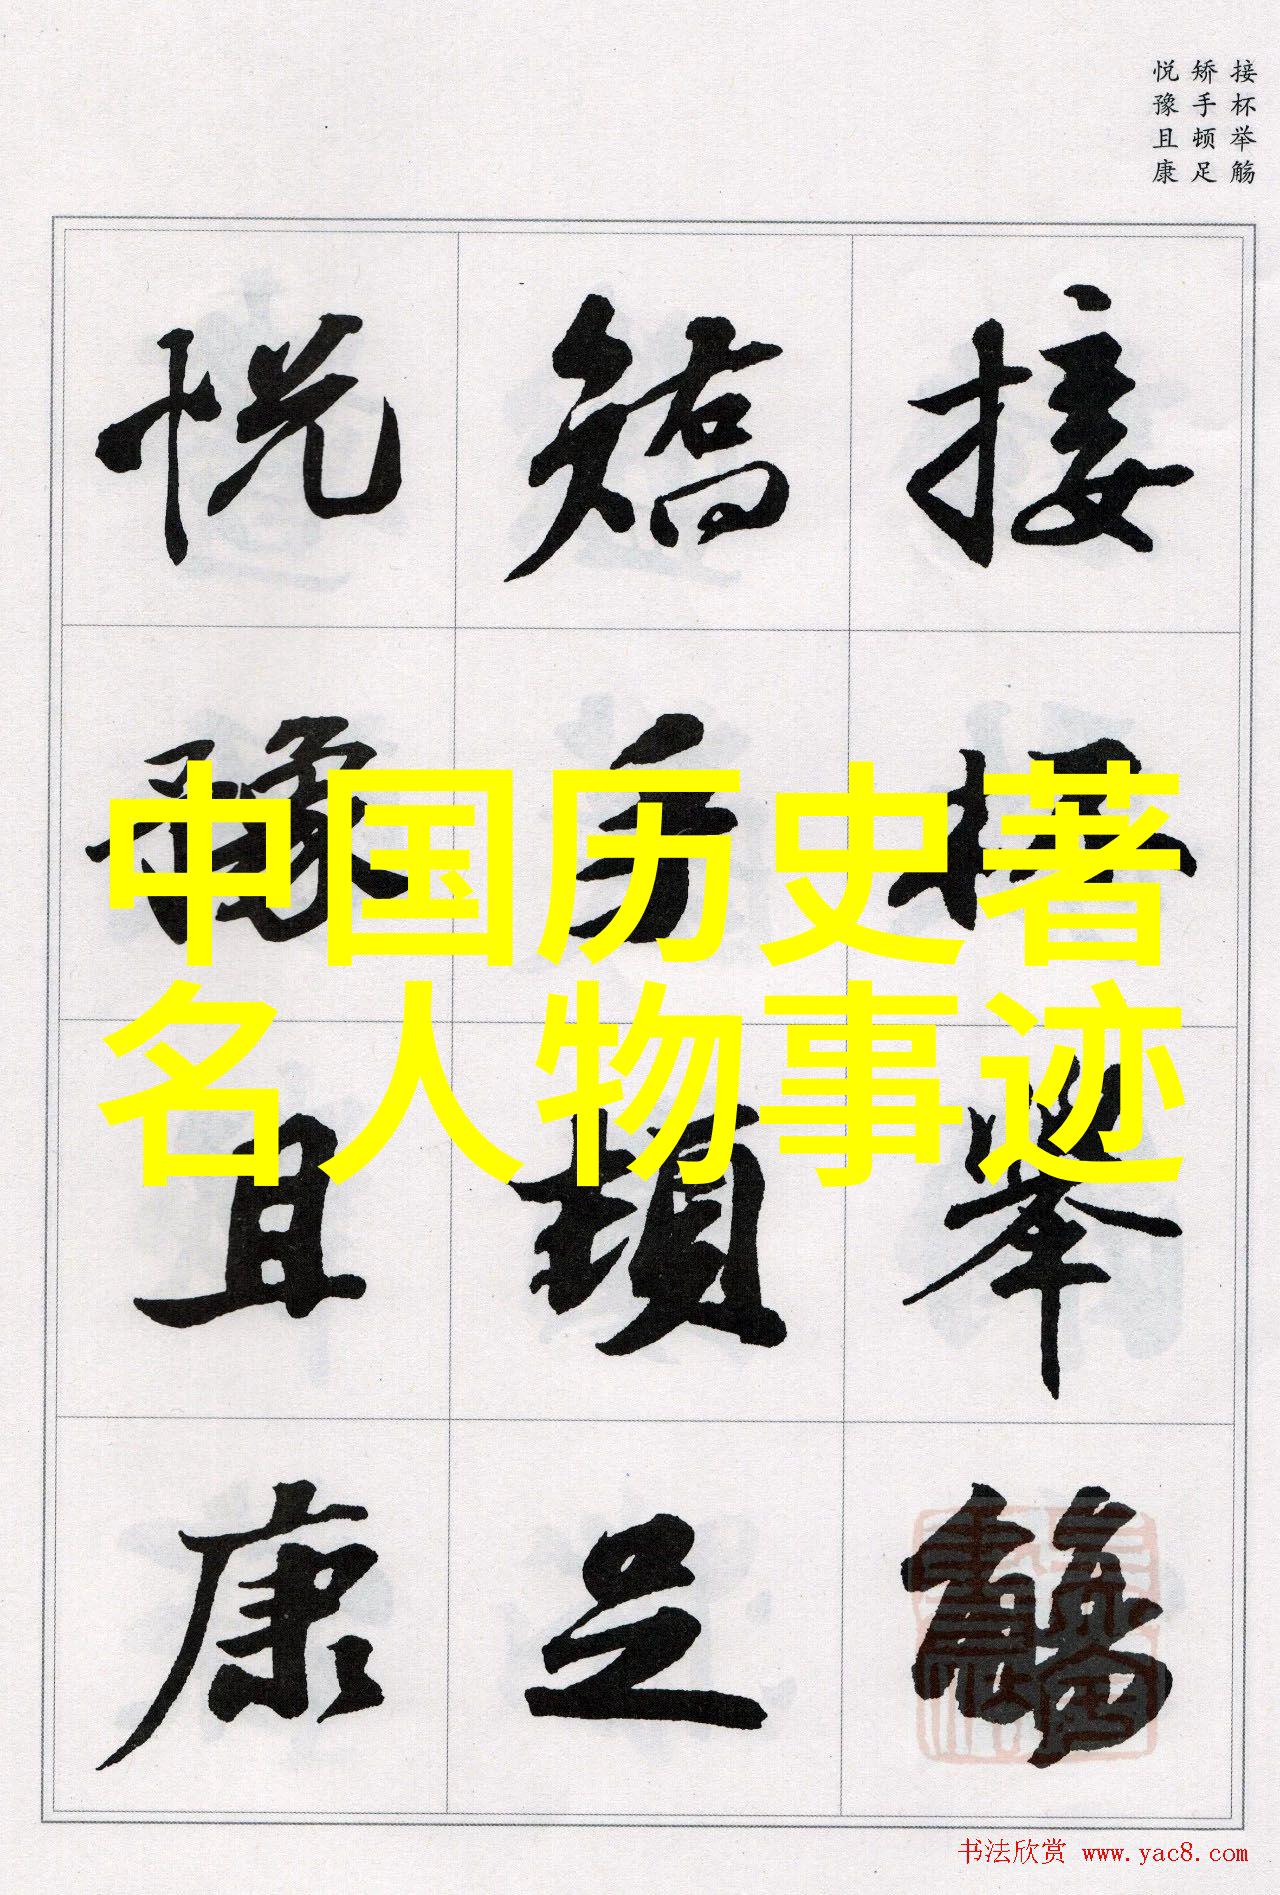 接杯举觞
矫手顿足
悦豫且康
接杯舉觴
矯手頓足
悦豫且康
中国历史著
名人物事迹
书法欣赏 www.yac8.com